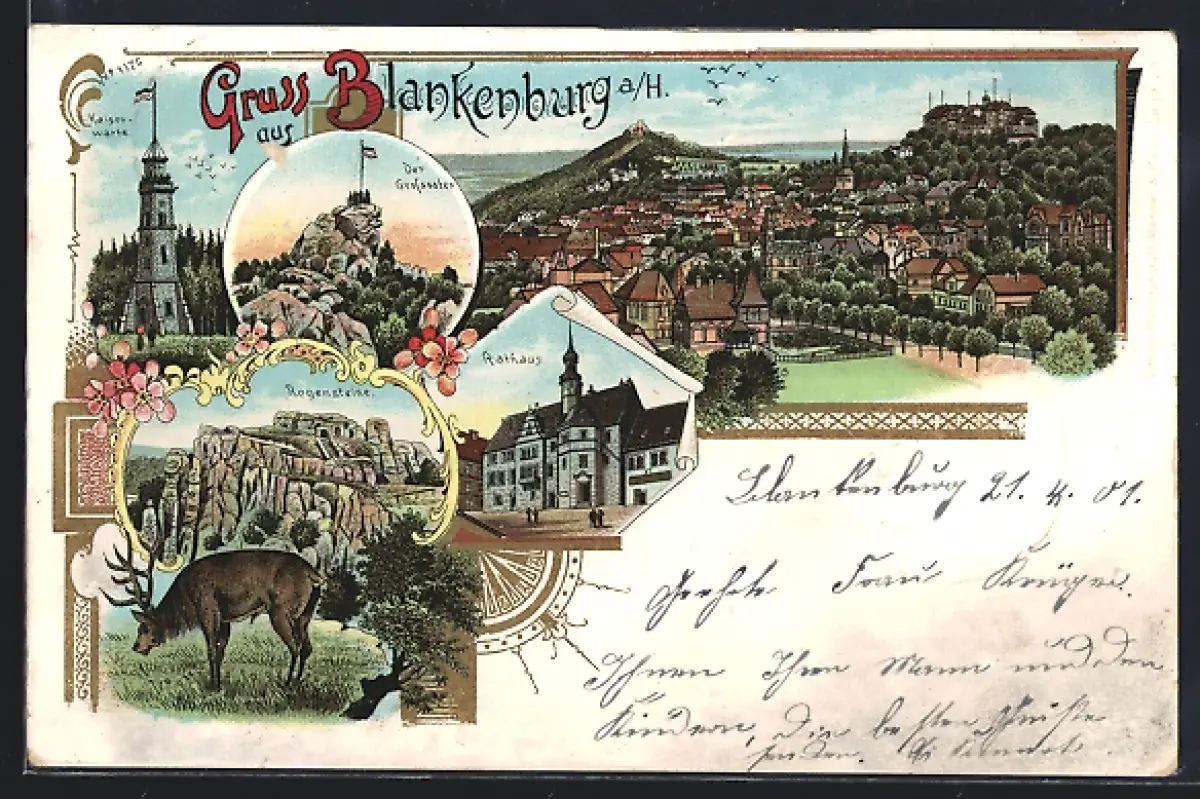 Gruss
aus
Blankenburg a/H.
Kaiser-
warte
Der
Grossvater
Rathaus
Regensteine.
Blankenburg 21. 4. 01.
Geehrte Frau Krüger.
Ihnen Ihren Mann und den
Kindern, die besten Grüsse
senden.